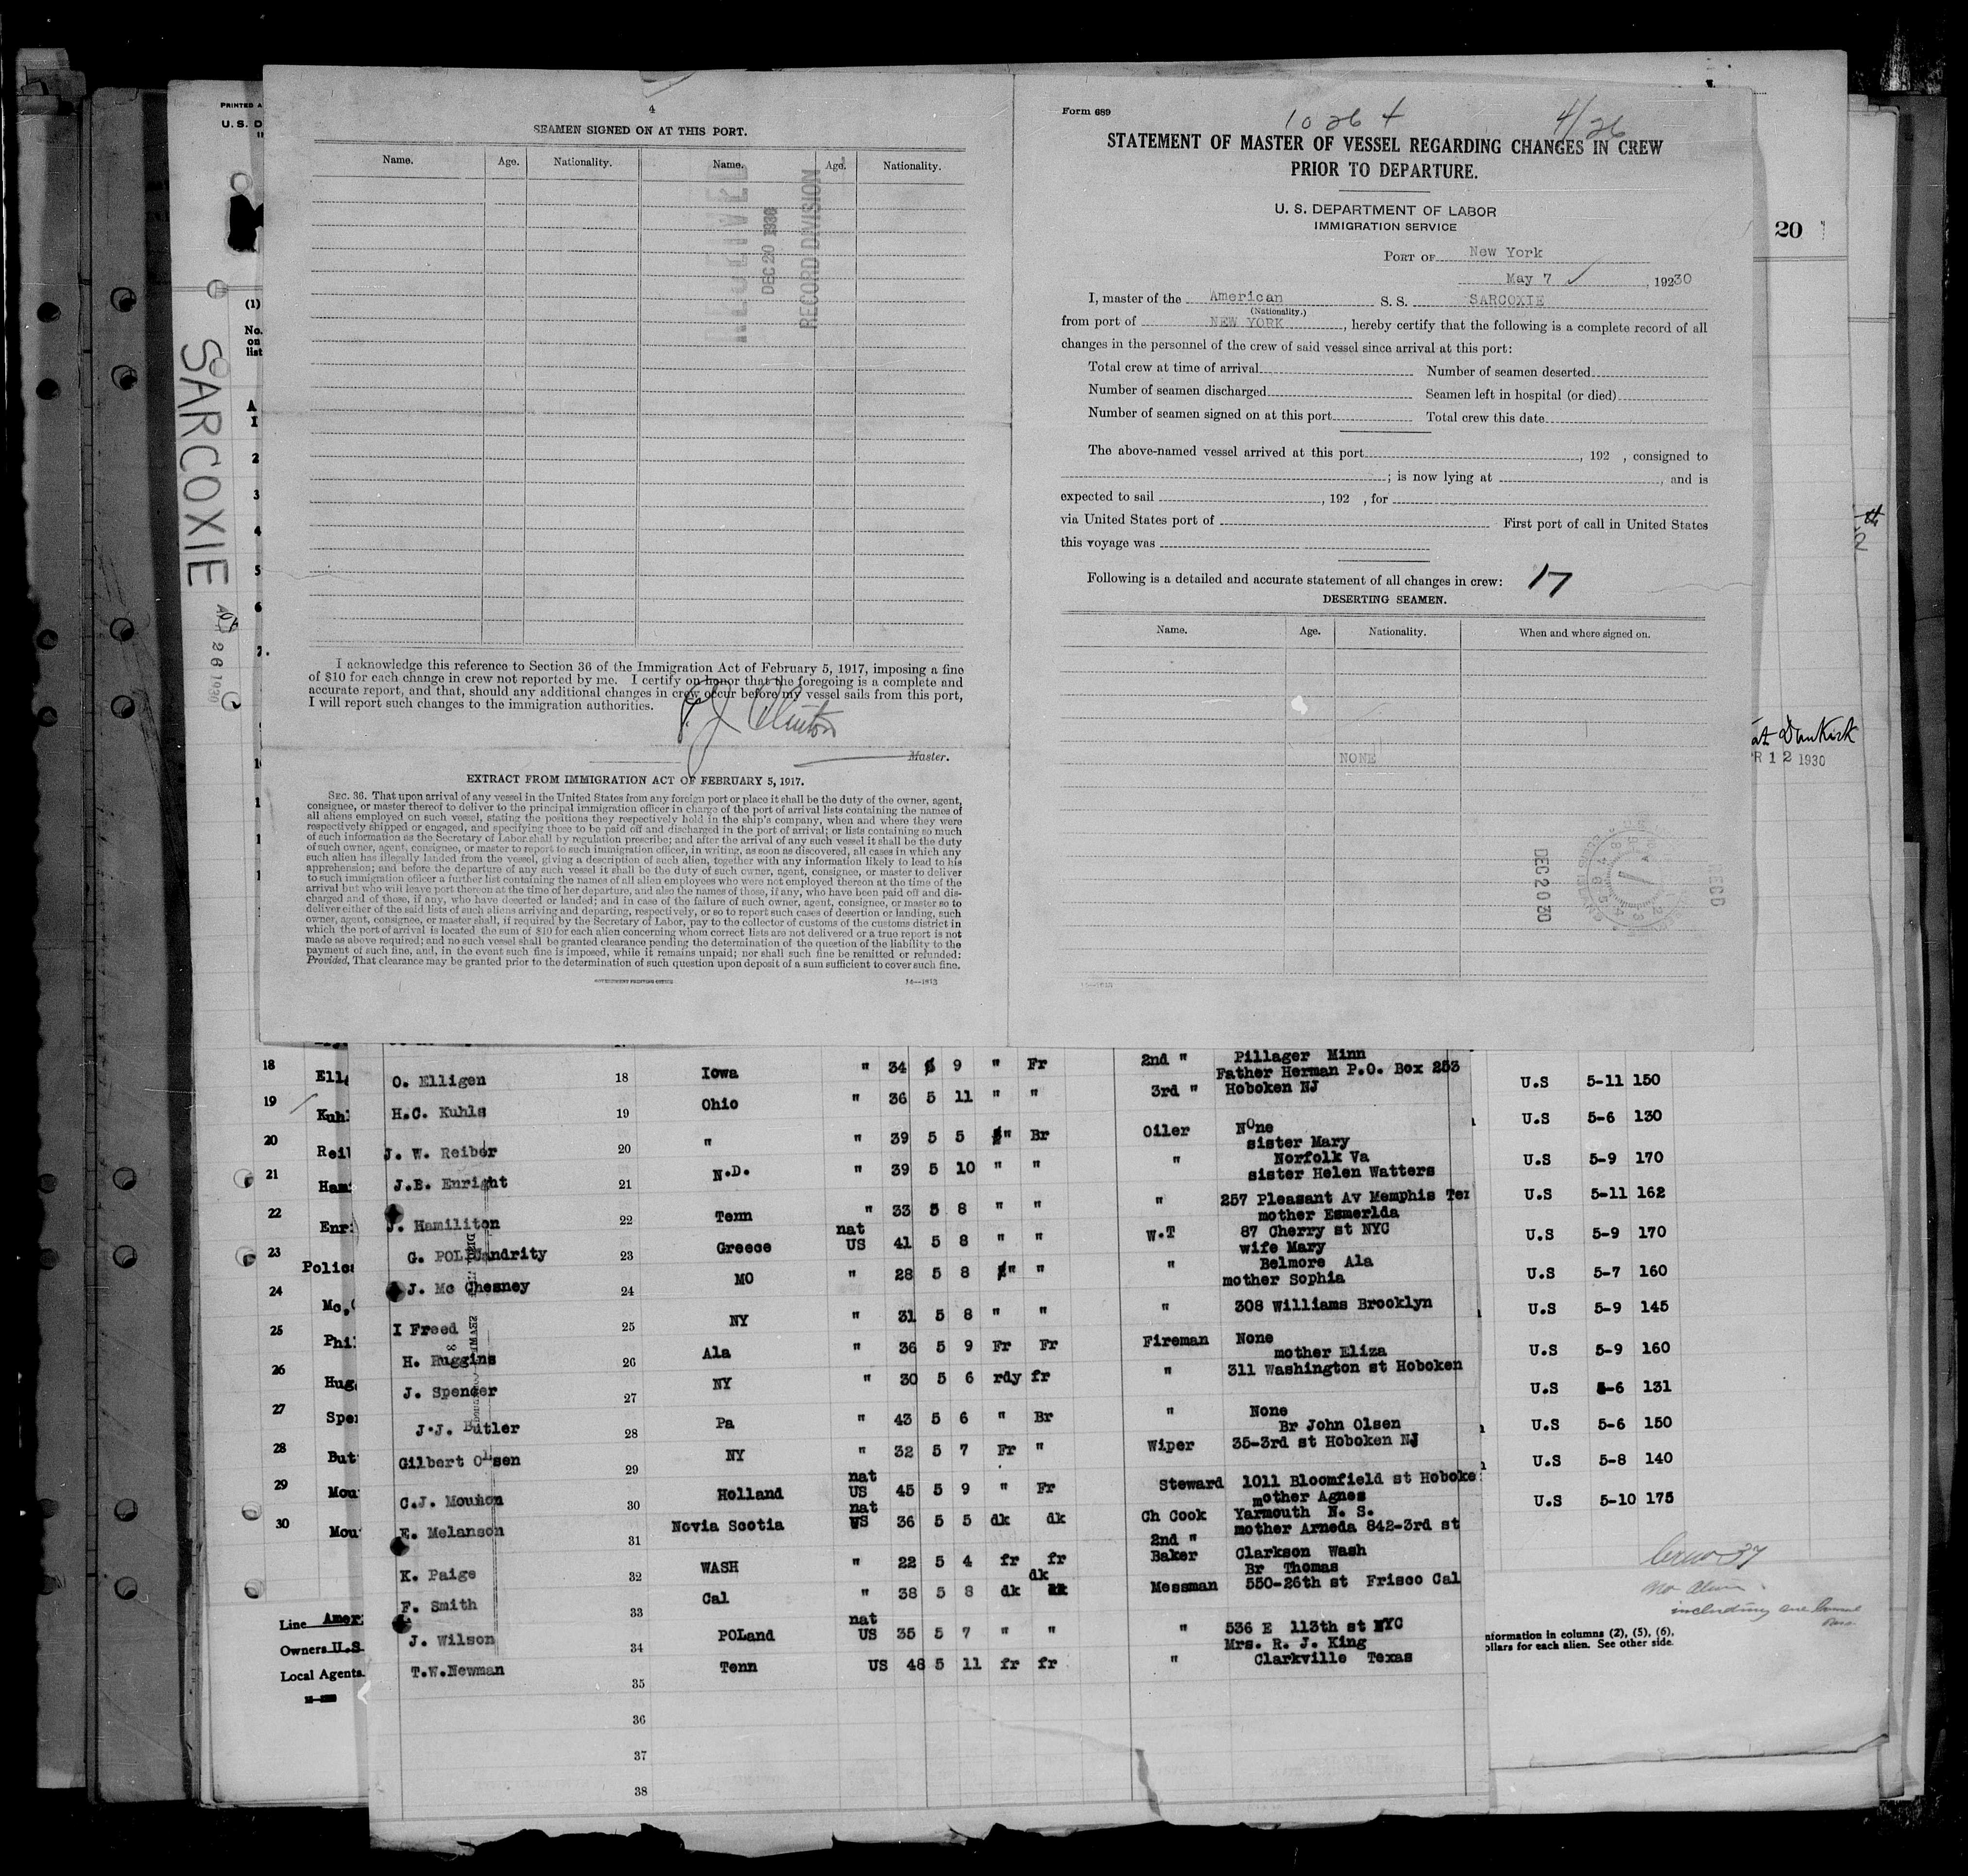 PRINTED A
U. S. D
SARCOXIE
(1)
No.
on
list
2
3
4
5
6
4
SEAMEN SIGNED ON AT THIS PORT.
Name. Age. Nationality. Name. Age. Nationality.
RECEIVED
DEC 20 1930
RECORD DIVISION
I acknowledge this reference to Section 36 of the Immigration Act of February 5, 1917, imposing a fine
of $10 for each change in crew not reported by me. I certify on honor that the foregoing is a complete and
accurate report, and that, should any additional changes in crew occur before my vessel sails from this port,
I will report such changes to the immigration authorities.
Master.
EXTRACT FROM IMMIGRATION ACT OF FEBRUARY 5, 1917.
SEC. 36. That upon arrival of any vessel in the United States from any foreign port or place it shall be the duty of the owner, agent,
consignee, or master thereof to deliver to the principal immigration officer in charge of the port of arrival lists containing the names of
all aliens employed on such vessel, stating the positions they respectively hold in the ship's company, when and where they were
respectively shipped or engaged, and specifying those to be paid off and discharged in the port of arrival; or lists containing so much
of such information as the Secretary of Labor shall by regulation prescribe; and after the arrival of any such vessel it shall be the duty
of such owner, agent, consignee, or master to report to such immigration officer, in writing, as soon as discovered, all cases in which any
such alien has illegally landed from the vessel, giving a description of such alien, together with any information likely to lead to his
apprehension; and before the departure of any such vessel it shall be the duty of such owner, agent, consignee, or master to deliver
to such immigration officer a further list containing the names of all alien employees who were not employed thereon at the time of the
arrival but who will leave port thereon at the time of her departure, and also the names of those, if any, who have been paid off and dis-
charged and of those, if any, who have deserted or landed; and in case of the failure of such owner, agent, consignee, or master so to
deliver either of the said lists of such aliens arriving and departing, respectively, or so to report such cases of desertion or landing, such
owner, agent, consignee, or master shall, if required by the Secretary of Labor, pay to the collector of customs of the customs district in
which the port of arrival is located the sum of $10 for each alien concerning whom correct lists are not delivered or a true report is not
made as above required; and no such vessel shall be granted clearance pending the determination of the question of the liability to the
payment of such fine, and, in the event such fine is imposed, while it remains unpaid; nor shall such fine be remitted or refunded:
Provided, That clearance may be granted prior to the determination of such question upon deposit of a sum sufficient to cover such fine.
GOVERNMENT PRINTING OFFICE
Form 689
4/26
STATEMENT OF MASTER OF VESSEL REGARDING CHANGES IN CREW
PRIOR TO DEPARTURE.
U. S. DEPARTMENT OF LABOR
IMMIGRATION SERVICE
PORT OF New York
May 7, 19230
I, master of the American S. S. SARCOXIE
(Nationality.)
from port of NEW YORK, hereby certify that the following is a complete record of all
changes in the personnel of the crew of said vessel since arrival at this port:
Total crew at time of arrival Number of seamen deserted
Number of seamen discharged Seamen left in hospital (or died)
Number of seamen signed on at this port Total crew this date
The above-named vessel arrived at this port, 192 , consigned to
; is now lying at , and is
expected to sail , 192 , for
via United States port of First port of call in United States
this voyage was
Following is a detailed and accurate statement of all changes in crew: 17
DESERTING SEAMEN.
Name. Age. Nationality. When and where signed on.
NONE
DEC 20 30
RECD
20
at Dunkirk
R 12 1930
Pillager Minn
18 Ell O. Elligen 18 Iowa " 34 9 " Fr 2nd " Father Herman P.O. Box 253 U.S 5-11 150
19 Kuhl H.C. Kuhls 19 Ohio " 36 5 11 " " 3rd " Hoboken NJ U.S 5-6 130
20 Rei J. W. Reiber 20 " " 39 5 5 " Br Oiler None U.S 5-9 170
sister Mary
21 Ham J.B. Enright 21 N.D. " 39 5 10 " " " Norfolk Va U.S 5-11 162
sister Helen Watters
22 Enr J. Hamiliton 22 Tenn " 33 5 8 " " " 257 Pleasant Av Memphis Te U.S 5-9 170
mother Esmerlda
23 Polic G. POLICandrity 23 Greece nat US 41 5 8 " " W.T 87 Cherry st NYC U.S 5-7 160
wife Mary
24 Mc, J. Mc Chesney 24 MO " 28 5 8 " " " Belmore Ala U.S 5-9 145
mother Sophia
25 Phi I Freed 25 NY " 31 5 8 " " " 308 Williams Brooklyn U.S 5-9 160
26 Hug H. Huggins 26 Ala " 36 5 9 Fr Fr Fireman None U.S 5-6 131
mother Eliza
27 Spe J. Spencer 27 NY " 30 5 6 rdy fr " 311 Washington st Hoboken U.S 5-6 150
28 But J.J. Butler 28 Pa " 43 5 6 " Br " None U.S 5-8 140
Br John Olsen
29 Mou Gilbert Olsen 29 NY " 32 5 7 Fr " Wiper 35-3rd st Hoboken NJ U.S 5-10 175
30 Mou C.J. Mouhon 30 Holland nat US 45 5 9 " Fr Steward 1011 Bloomfield st Hoboke
mother Agnes
E. Melanson 31 Novia Scotia nat US 36 5 5 dk dk Ch Cook Yarmouth N. S.
2nd " mother Arneda 842-3rd st
K. Paige 32 WASH " 22 5 4 fr fr Baker Clarkson Wash
Br Thomas
F. Smith 33 Cal " 38 5 8 dk dk Messman 550-26th st Frisco Cal
J. Wilson 34 POLand nat US 35 5 7 " " " 536 E 113th st NYC
Mrs. R. J. King
T.W.Newman 35 Tenn US 48 5 11 fr fr " Clarkville Texas
36
37
38
Line Amer
Owners U.S
Local Agents
Crew 37
nformation in columns (2), (5), (6),
ollars for each alien. See other side.